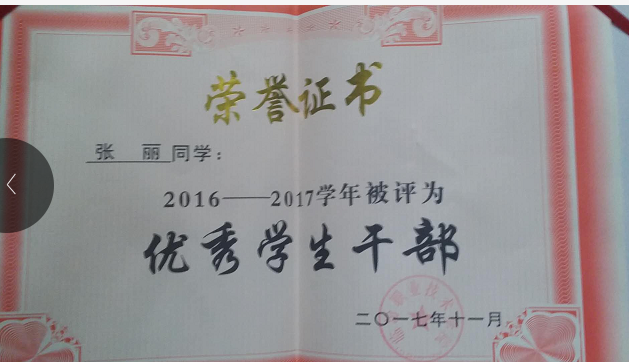 荣誉证书
张 丽 同学：
2016——2017学年被评为
优秀学生干部
二〇一七年十一月